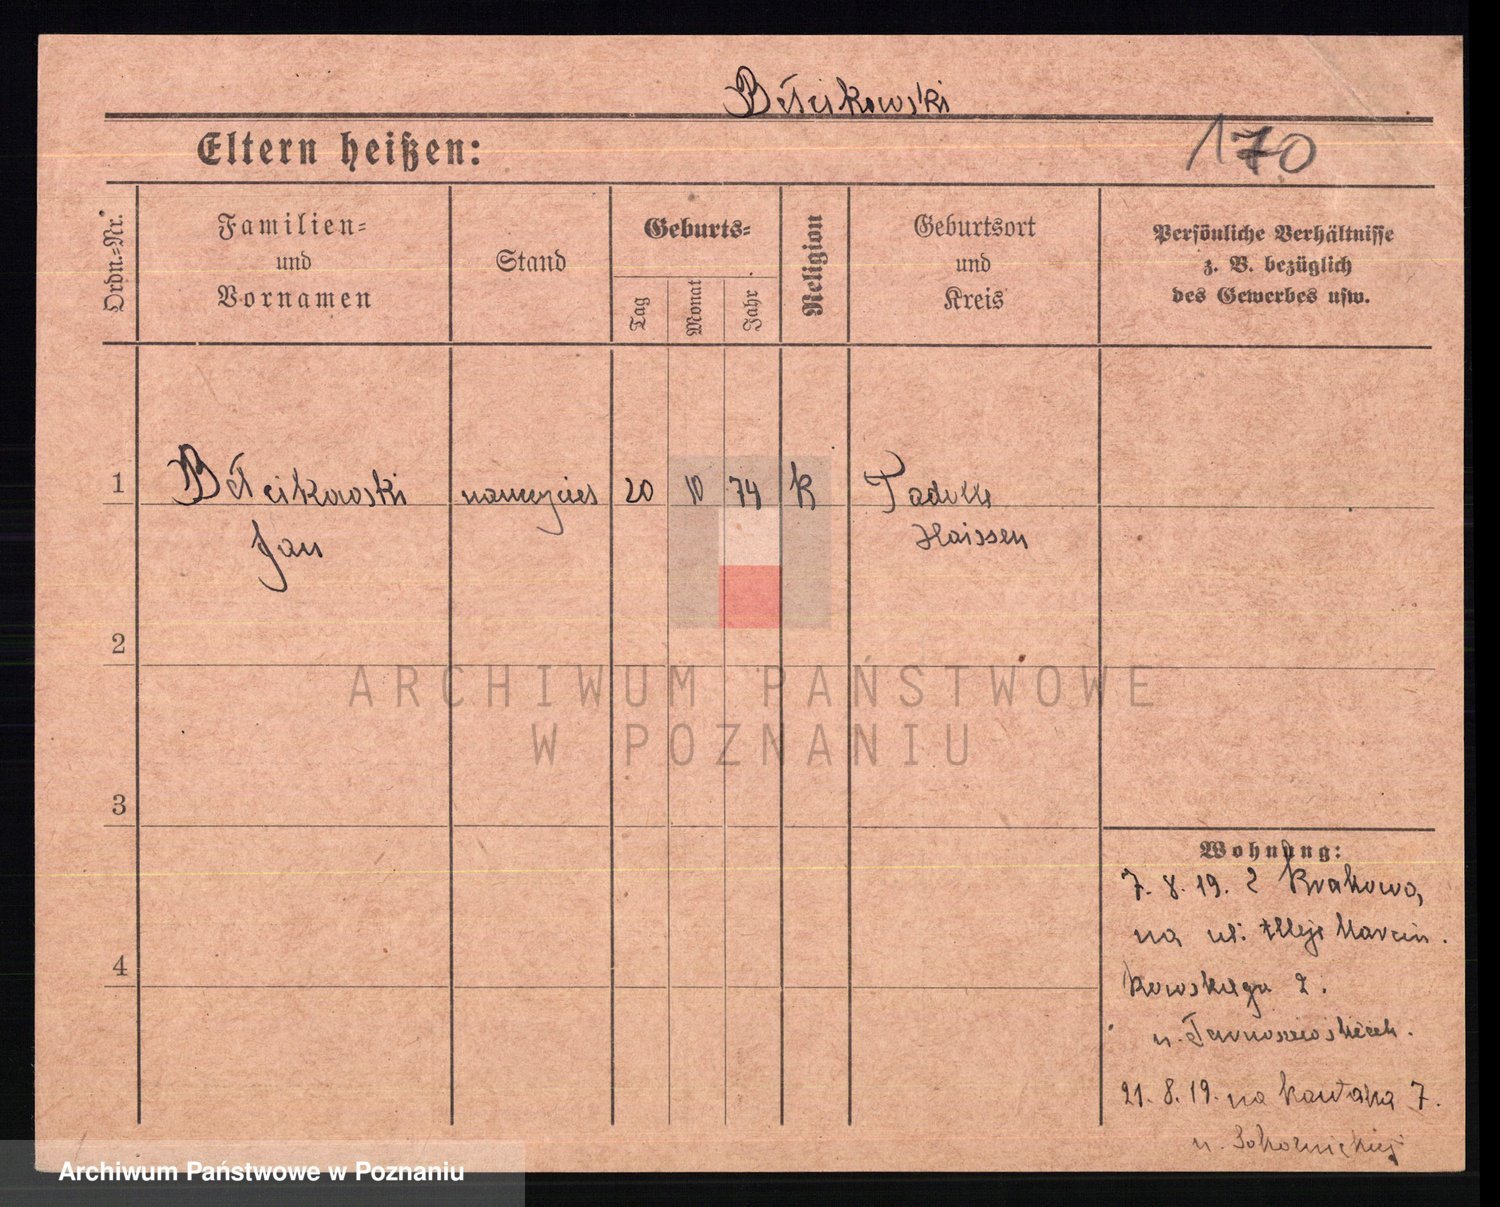 Bełcikowski
Eltern heißen:
170
Ordn.-Nr.
Familien-
und
Vornamen
Stand
Geburts-
Tag
Monat
Jahr
Religion
Geburtsort
und
Kreis
Persönliche Verhältnisse
z. B. bezüglich
des Gewerbes usw.
1
Bełcikowski
Jan
20 10 74 K
2
3
4
Wohnung:
7. 8. 19. z Krakowa,
na ul. Marcin
kowskiego 2.
21. 8. 19. na 7.
ARCHIWUM PAŃSTWOWE
W POZNANIU
Archiwum Państwowe w Poznaniu